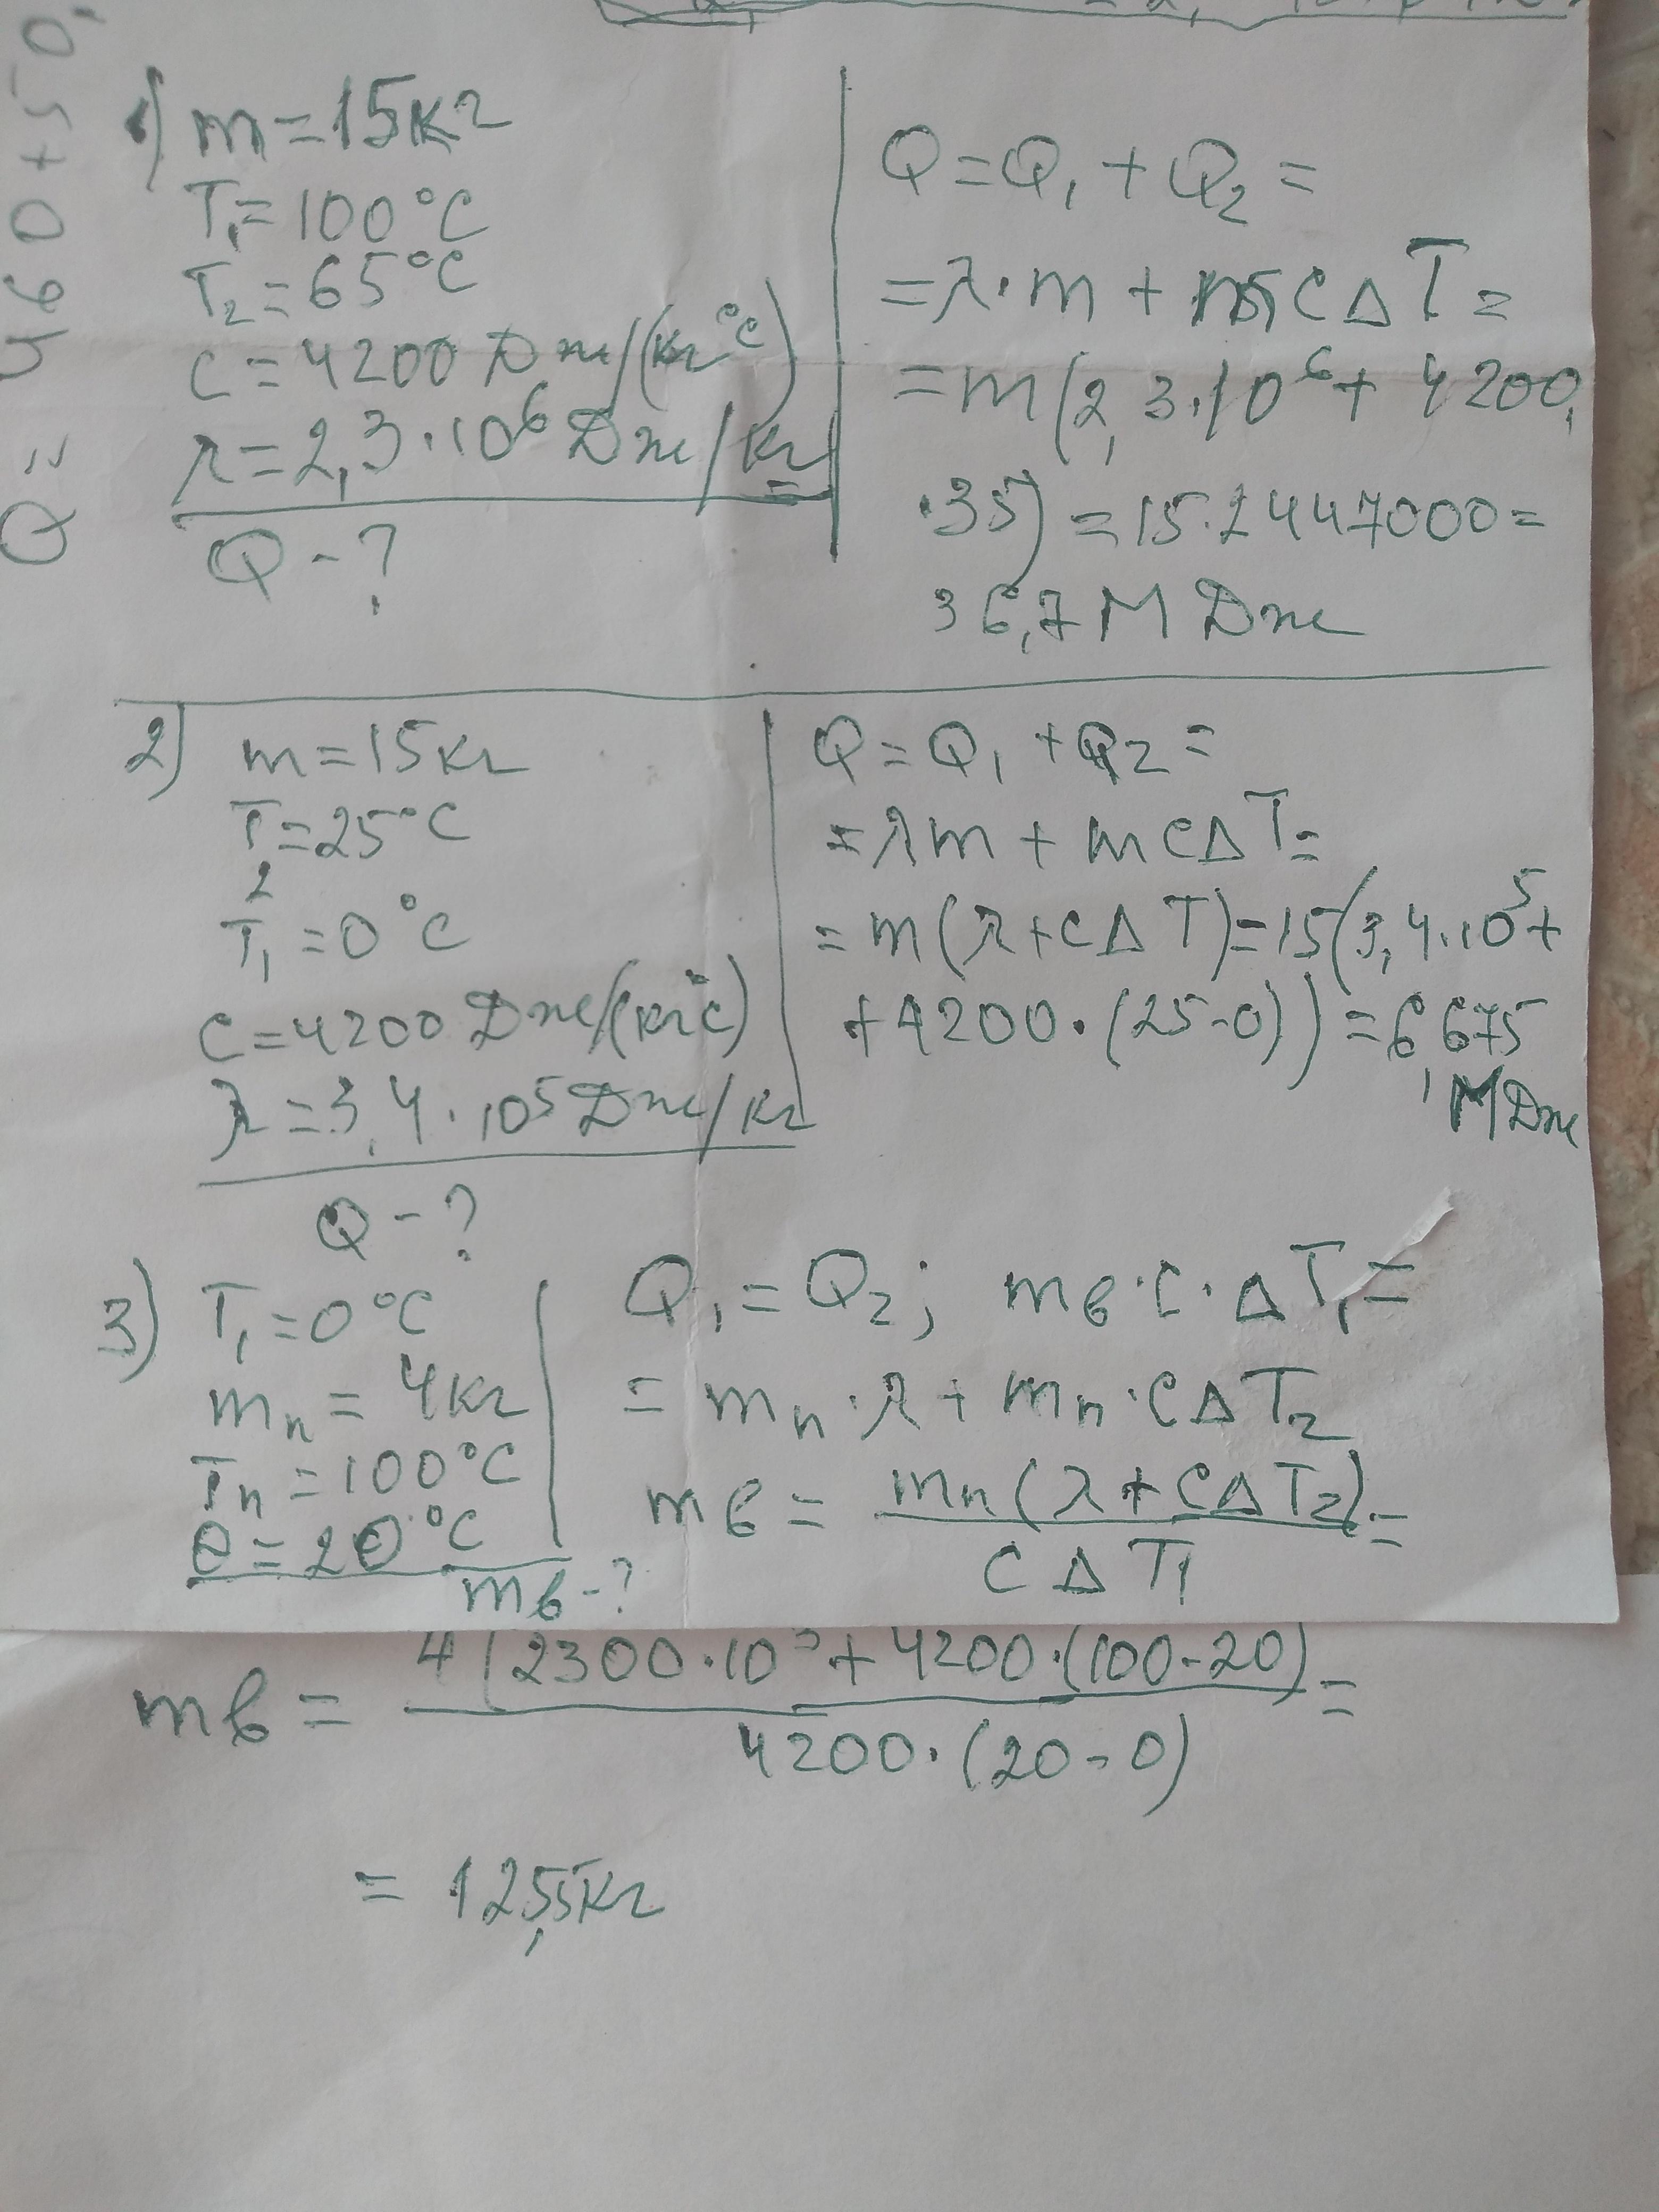 1) m = 15 кг
T₁ = 100 °C
T₂ = 65 °C
c = 4200 Дж/(кг°C)
λ = 2,3 · 10⁶ Дж/кг
Q - ?
Q = Q₁ + Q₂ =
= λ · m + m c Δ T =
= m (2,3 · 10⁶ + 4200 ·
· 35) = 15 · 2447000 =
36,7 М Дж
2) m = 15 кг
T₂ = 25 °C
T₁ = 0 °C
c = 4200 Дж/(кг°C)
λ = 3,4 · 10⁵ Дж/кг
Q - ?
Q = Q₁ + Q₂ =
= λm + mcΔT =
= m (λ + cΔT) = 15 (3,4 · 10⁵ +
+ 4200 · (25 - 0)) = 6,675
МДж
3) T₁ = 0 °C
mп = 4 кг
Tп = 100 °C
Θ = 20 °C
mв - ?
Q₁ = Q₂; mв · c · ΔT₁ =
= mп · λ + mп · cΔT₂
mв = mп (λ + cΔT₂) =
cΔT₁
mв = 4 (2300 · 10³ + 4200 · (100 - 20) =
4200 · (20 - 0)
= 125,5 кг
Q = 460 + 50,